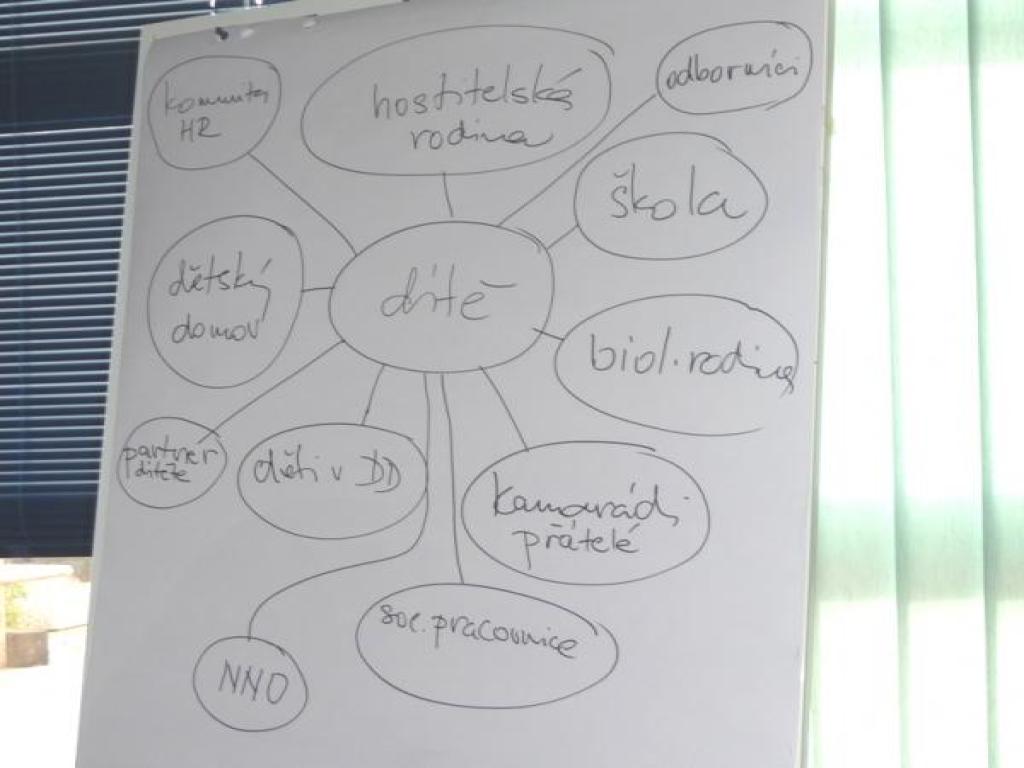 komunita
HR
hostitelská
rodina
odborníci
škola
dětský
domov
dítě
biol. rodina
partner
dítěte
děti v DD
kamarádi
přátelé
soc. pracovnice
NNO